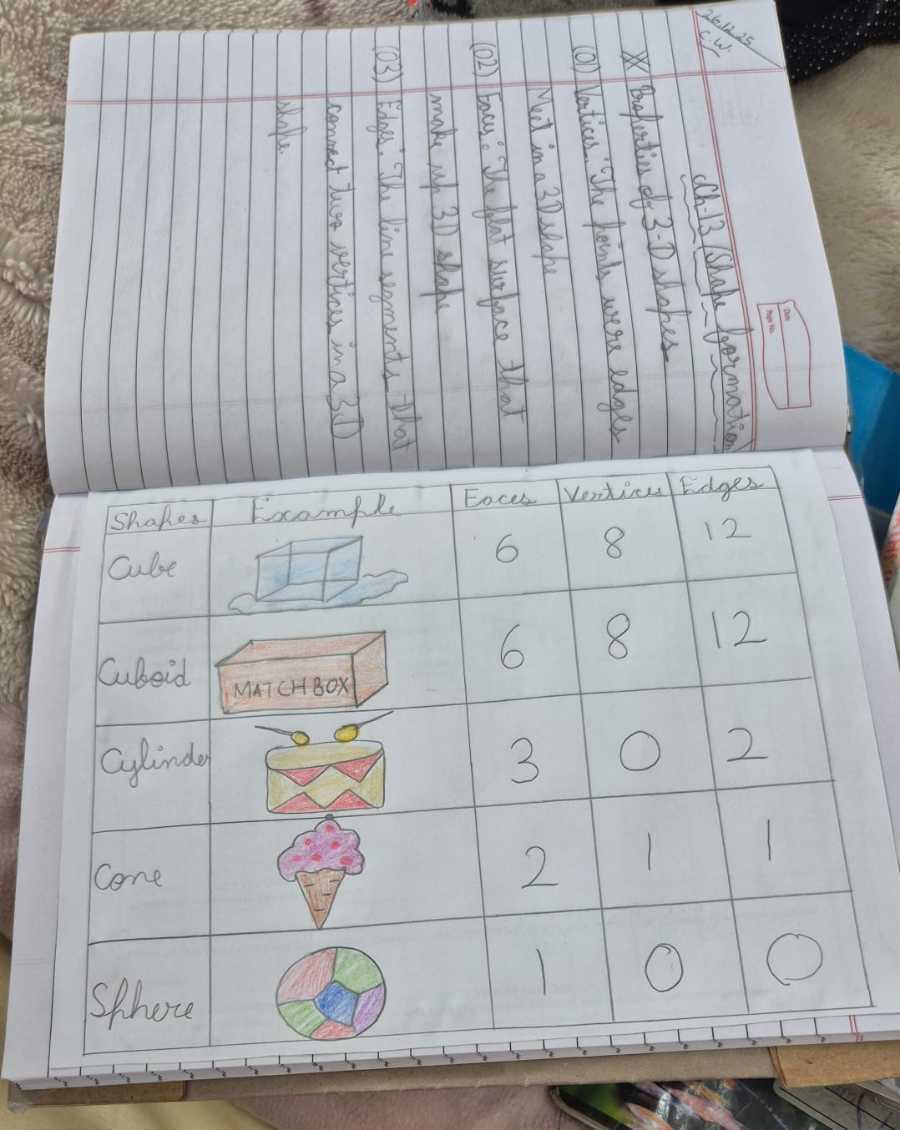 26.12.25
C.W.
Date
Page No.
Ch-13 (Shape formation
Properties of 3-D shapes
(01) Vertices: The points were edges
Meet in a 3D shape
(02) Faces: The flat surface that
make up 3D shape
(03) Edges: The line segments that
connect two vertices in a 3D
shape.
Shapes Example Faces Vertices Edges
Cube 6 8 12
Cuboid MATCHBOX 6 8 12
Cylinder 3 0 2
Cone 2 1 1
Sphere 1 0 0